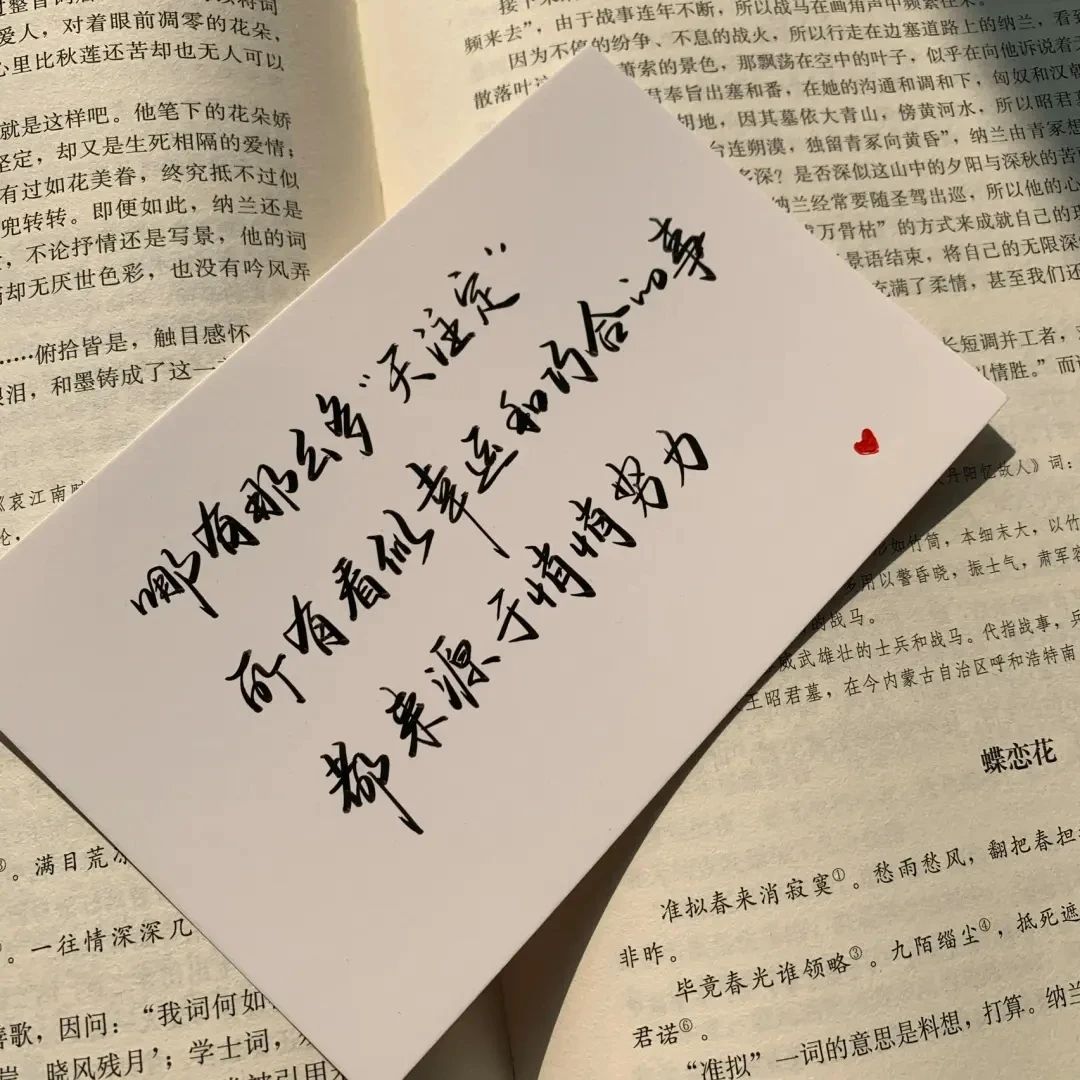 爱人，对着眼前凋零的花朵，
心里比秋莲还苦却也无人可以
就是这样吧。他笔下的花朵娇
坚定，却又是生死相隔的爱情；
有过如花美眷，终究抵不过似
兜转转。即便如此，纳兰还是
，不论抒情还是写景，他的词
却无厌世色彩，也没有吟风弄
……俯拾皆是，触目感怀
泪，和墨铸成了这一
《哀江南
论，
哪有那么多“天注定”
所有看似幸运和巧合的事
都来源于悄悄努力
频来去”，由于战事连年不断，所以战马在画角声中频繁往来。
因为不停的纷争、不息的战火，所以行走在边塞道路上的纳兰，看到
散落叶 萧索的景色，那飘荡在空中的叶子，似乎在向他诉说着
君奉旨出塞和番，在她的沟通和调和下，匈奴和汉朝
胡地，因其墓依大青山，傍黄河水，所以昭君
台连朔漠，独留青冢向黄昏”，纳兰由青冢想
多深？是否深似这山中的夕阳与深秋的苦
纳兰经常要随圣驾出巡，所以他的心
万骨枯”的方式来成就自己的理
景语结束，将自己的无限深
充满了柔情，甚至我们还
长短调并工者，
情胜。”而
丹阳忆故人》词：
形如竹筒，本细末大，以竹
多用以警昏晓，振士气，肃军容
的战马。
威武雄壮的士兵和战马。代指战事，兵
王昭君墓，在今内蒙古自治区呼和浩特南
蝶恋花
准拟春来消寂寞①。愁雨愁风，翻把春担
非昨。
毕竟春光谁领略③。九陌缁尘④，抵死遮
君诺⑥。
“准拟”一词的意思是料想，打算。纳兰
③。满目荒凉
。一往情深深几
善歌，因问：“我词何如
岸，晓风残月’；学士词，
被引用